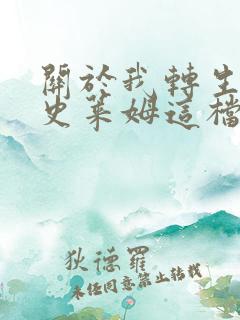 關於我轉生
史萊姆這檔
狄德羅
未經同意禁止轉載